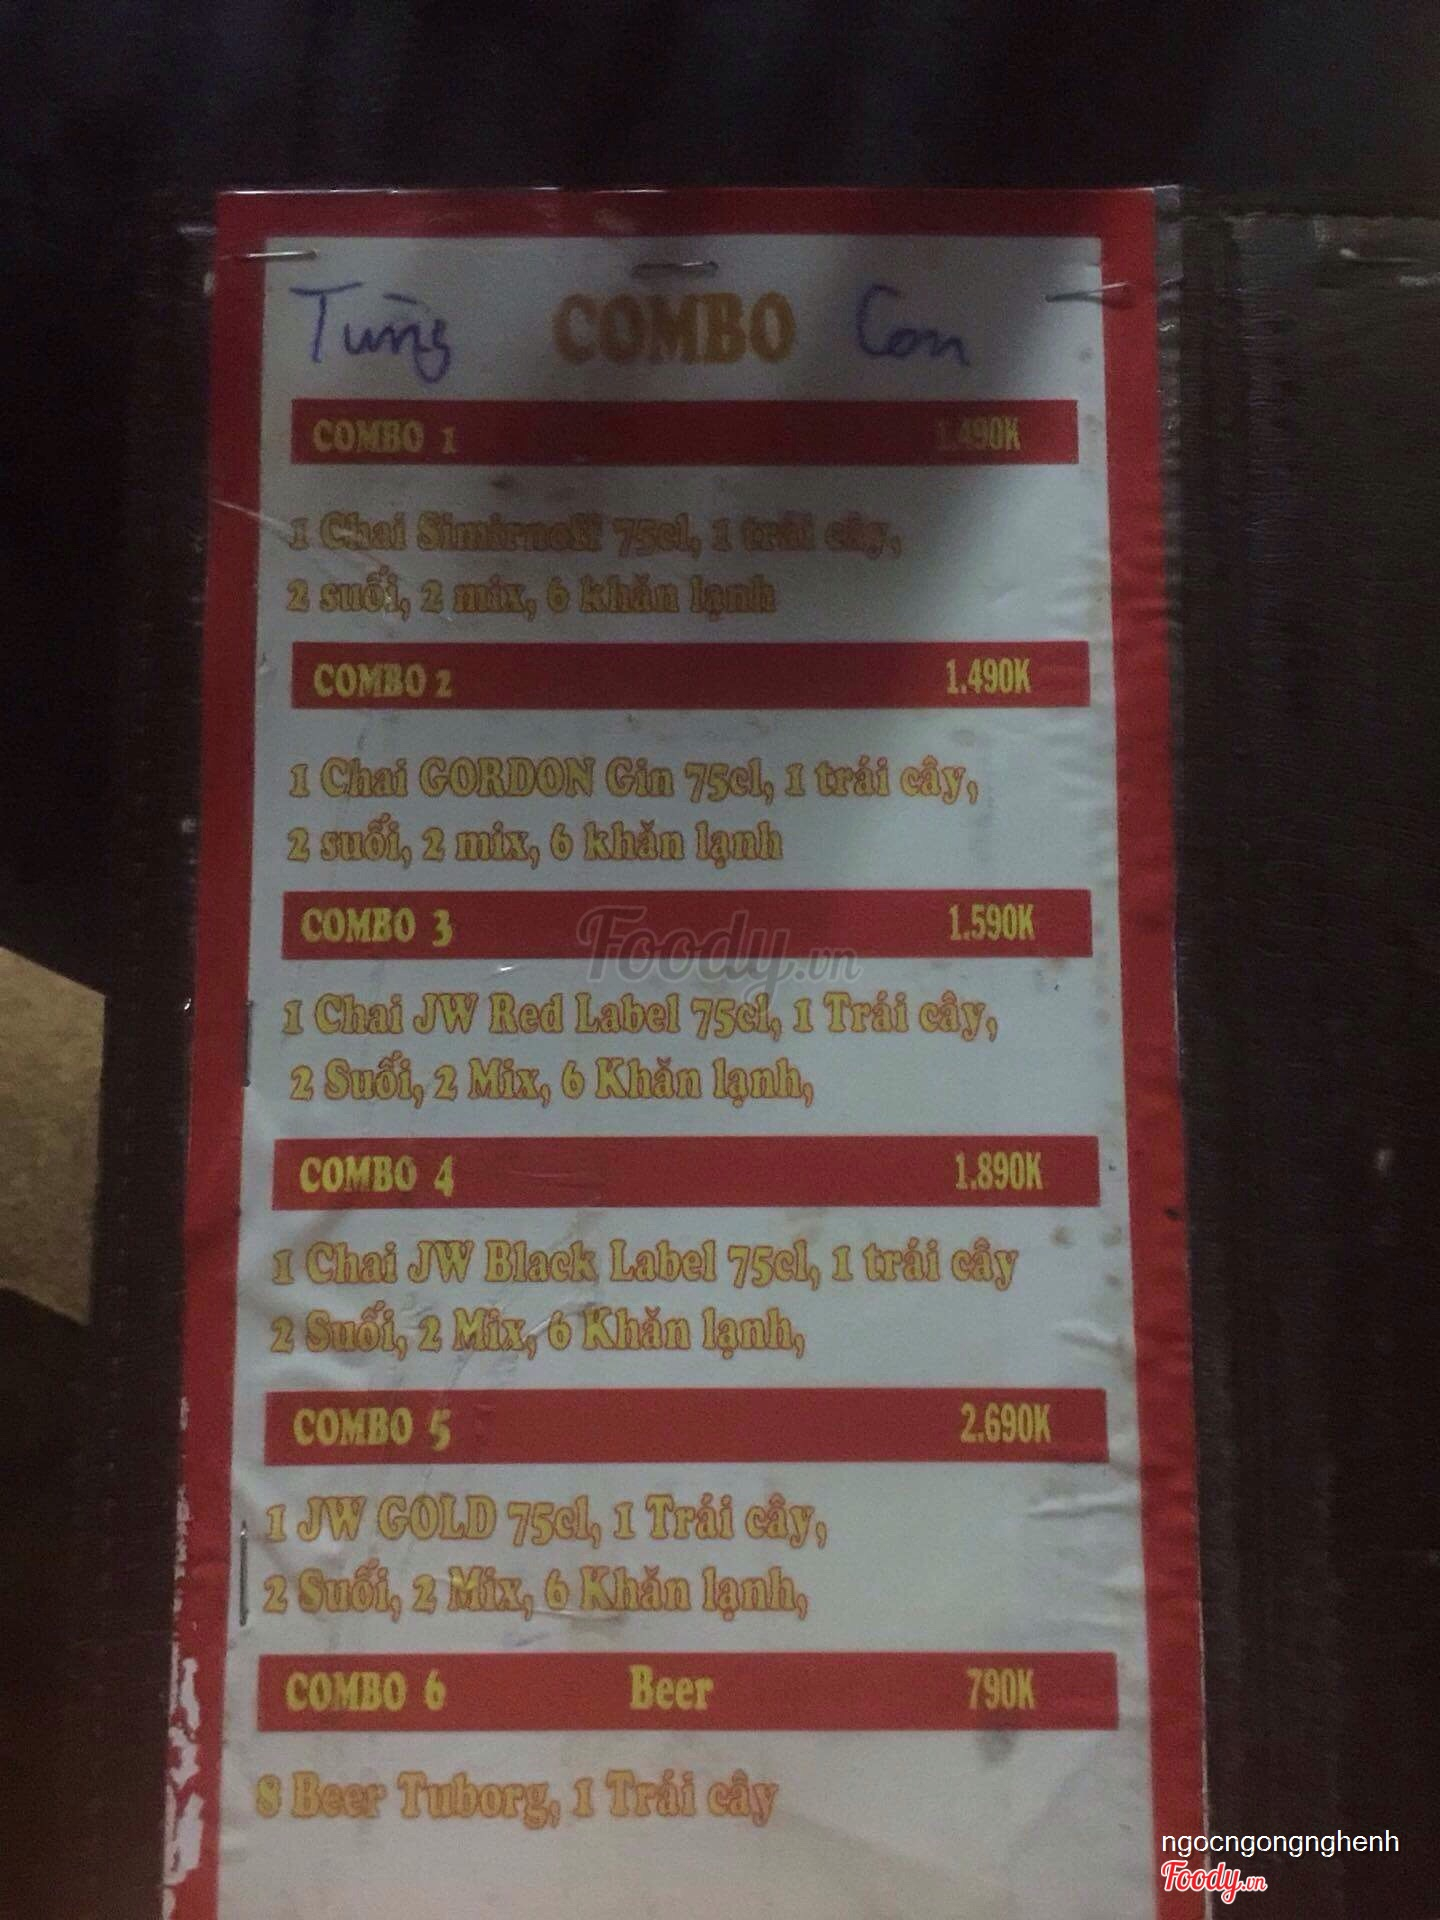 Tùng COMBO Con
COMBO 1 1.490K
1 Chai Simirnoff 75cl, 1 trái cây,
2 suối, 2 mix, 6 khăn lạnh
COMBO 2 1.490K
1 Chai GORDON Gin 75cl, 1 trái cây,
2 suối, 2 mix, 6 khăn lạnh
COMBO 3 1.590K
1 Chai JW Red Label 75cl, 1 Trái cây,
2 Suối, 2 Mix, 6 Khăn lạnh,
COMBO 4 1.890K
1 Chai JW Black Label 75cl, 1 trái cây
2 Suối, 2 Mix, 6 Khăn lạnh,
COMBO 5 2.690K
1 JW GOLD 75cl, 1 Trái cây,
2 Suối, 2 Mix, 6 Khăn lạnh,
COMBO 6 Beer 790K
8 Beer Tuborg, 1 Trái cây
Foody.vn
ngocngongnghenh
Foody.vn